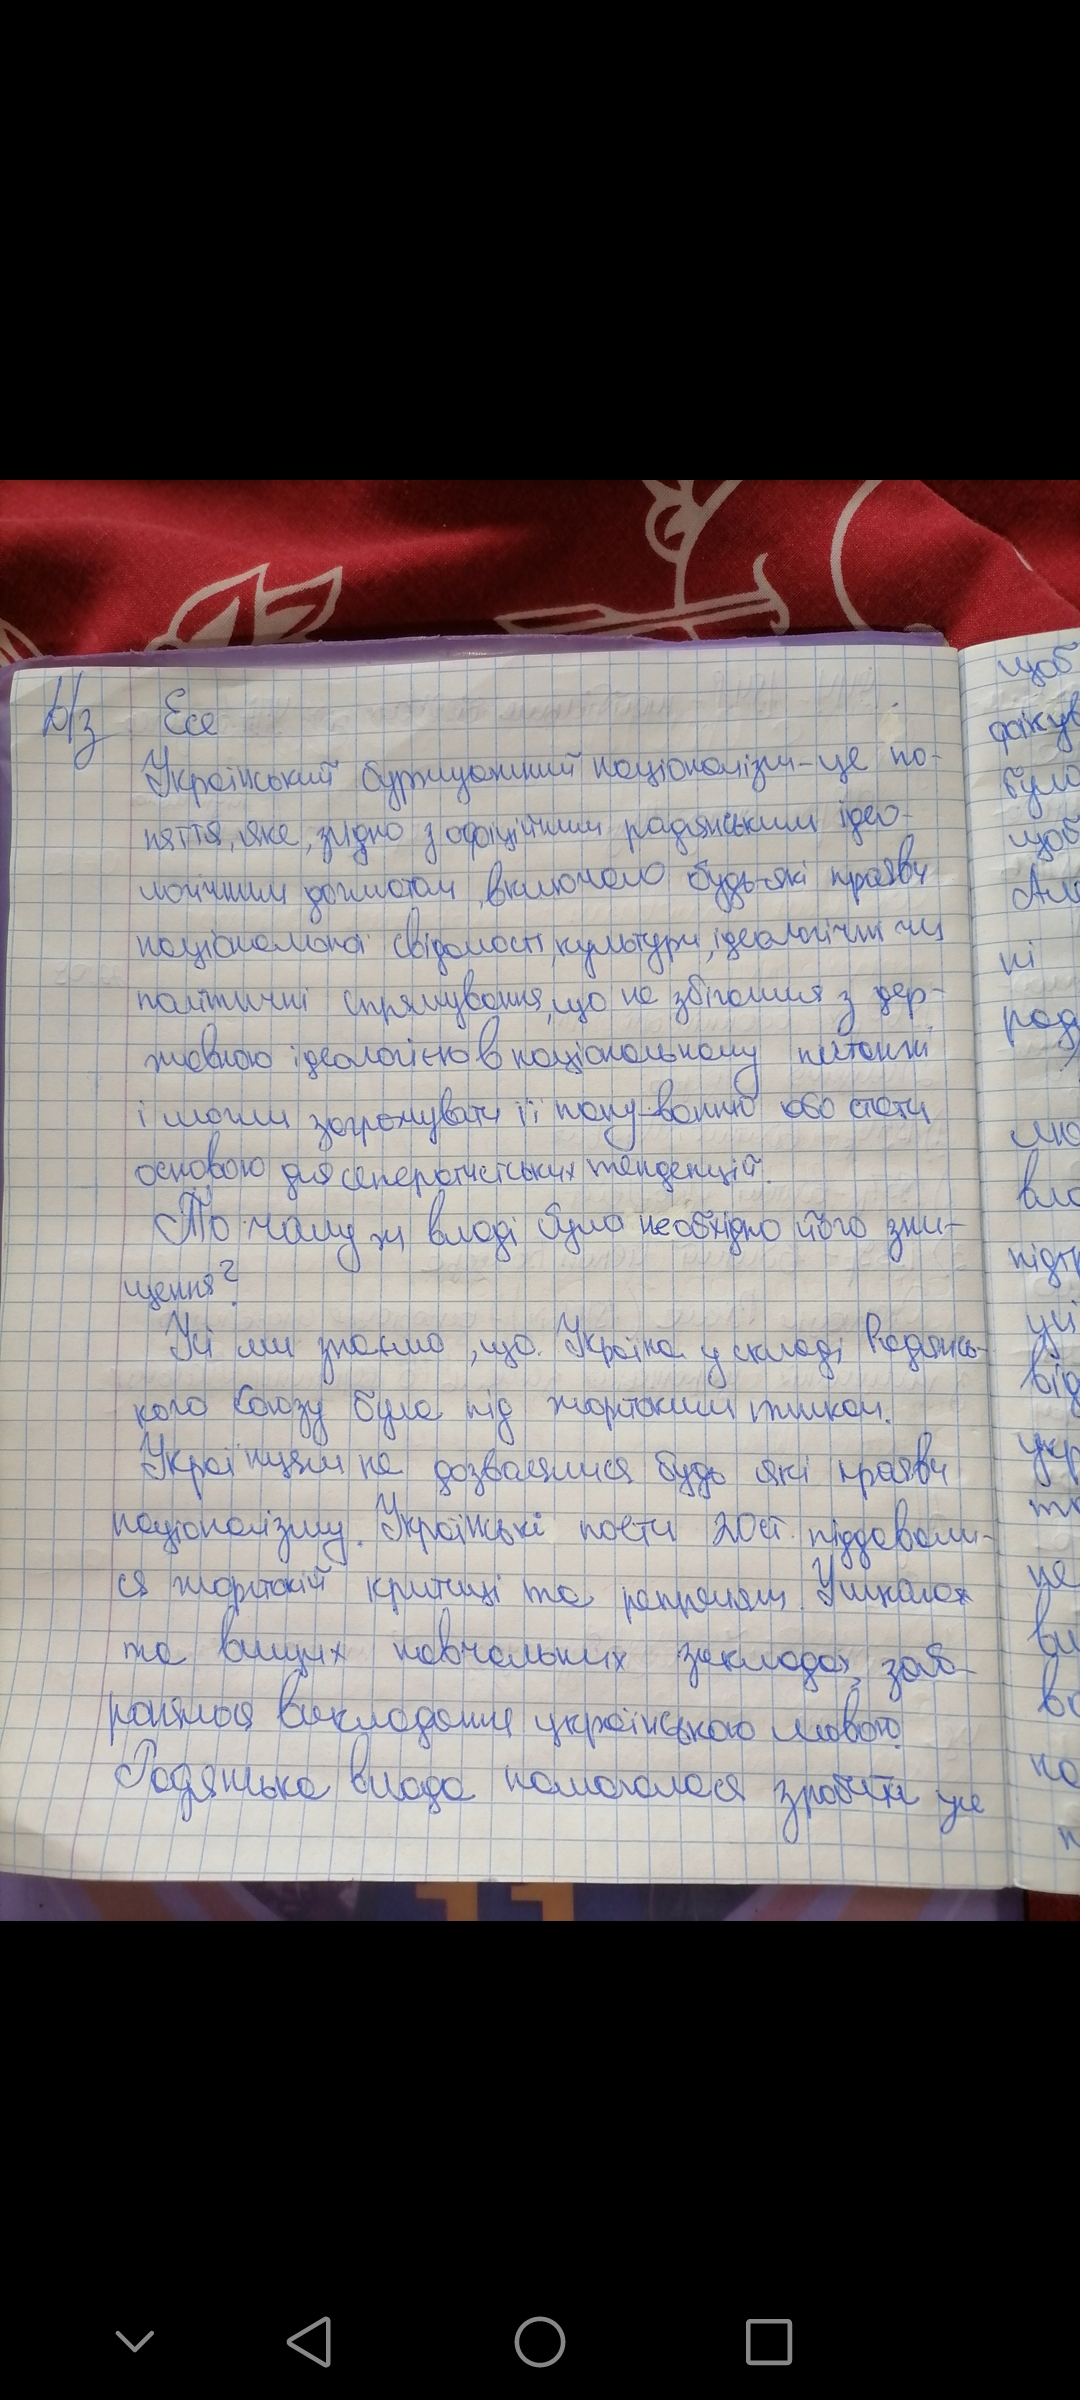 Д/з Есе
Український буржуазний націоналізм - це по-
няття, яке, згідно з офіційним радянським ідео-
логічним догматом, включало будь-які прояви
національної свідомості, культури, ідеологічні чи
політичні спрямування, що не збігалися з дер-
жавною ідеологією в національному питанні
і могли загрожувати її пануванню або стати
основою для сепаратистських тенденцій.
То чому ж владі було необхідно його зни-
щення?
Усі ми знаємо, що Україна у складі Радянсь-
кого Союзу була під жорстоким тиском.
Українцям не дозволялися будь які прояви
націоналізму. Українські поети 20 ст. піддавали-
ся жорсткій критиці та репресіям. У школах
та вищих навчальних закладах, заб-
ронялося викладання українською мовою.
Радянська влада намагалася зробити усе
щоб
було
щоб
ні